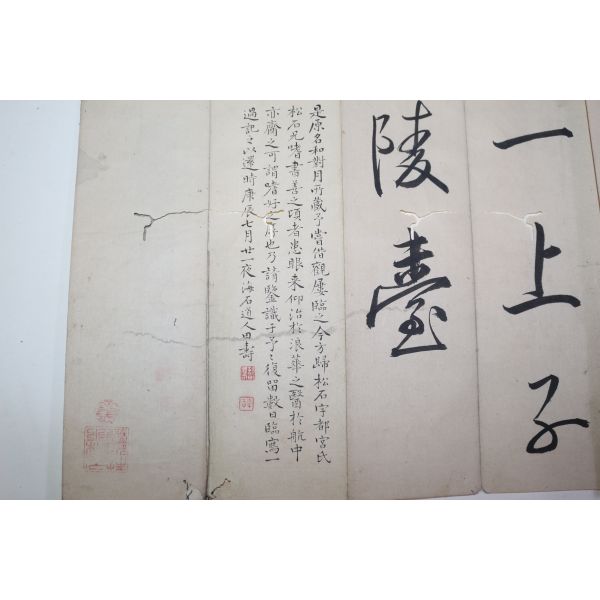 一上子
陵臺
是原名和對月所藏予嘗借觀屢臨之今方歸松石宇都宮氏
松石兄嗜書善之頃者患眼来仰治於浪華之醫於航中
亦齎之可謂嗜好之也乃請鑒識于予々復留數日臨寫一
過記之以還時庚辰七月廿一夜海石道人田壽